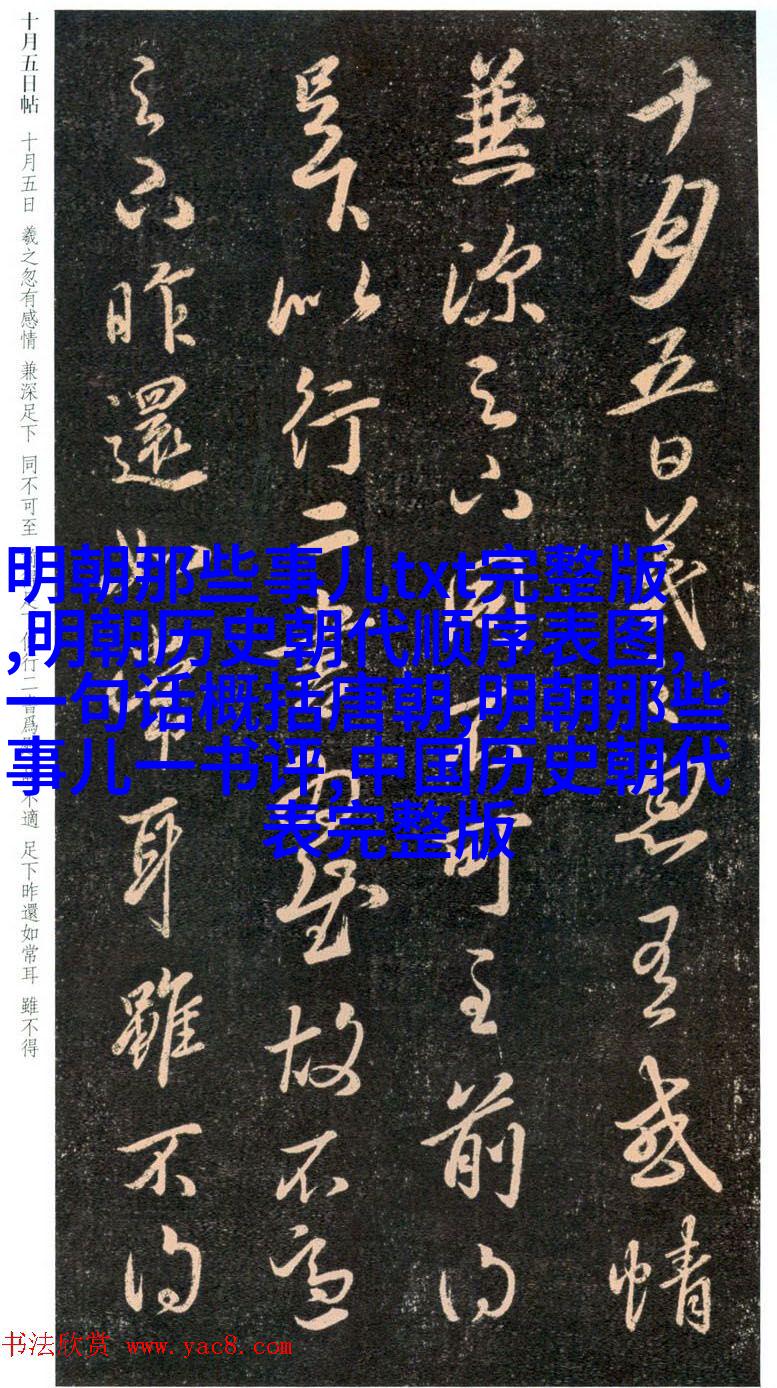 十月五日帖 十月五日 羲之忽有感情 兼深足下 同不可至 行二書爲 不適 足下昨還如常耳 雖不得
十月五日羲之忽有感情
兼深足下同不可至前得
足下以行二書故不適
足下昨還如常耳雖不得
明朝那些事儿txt完整版
,明朝历史朝代顺序表图,
一句话概括唐朝,明朝那些
事儿一书评,中国历史朝代
表完整版
书法欣赏 www.yac8.com